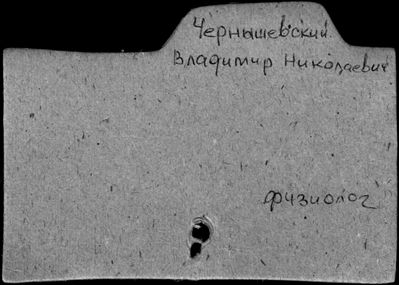 Чернышевский
Владимир Николаевич
физиолог